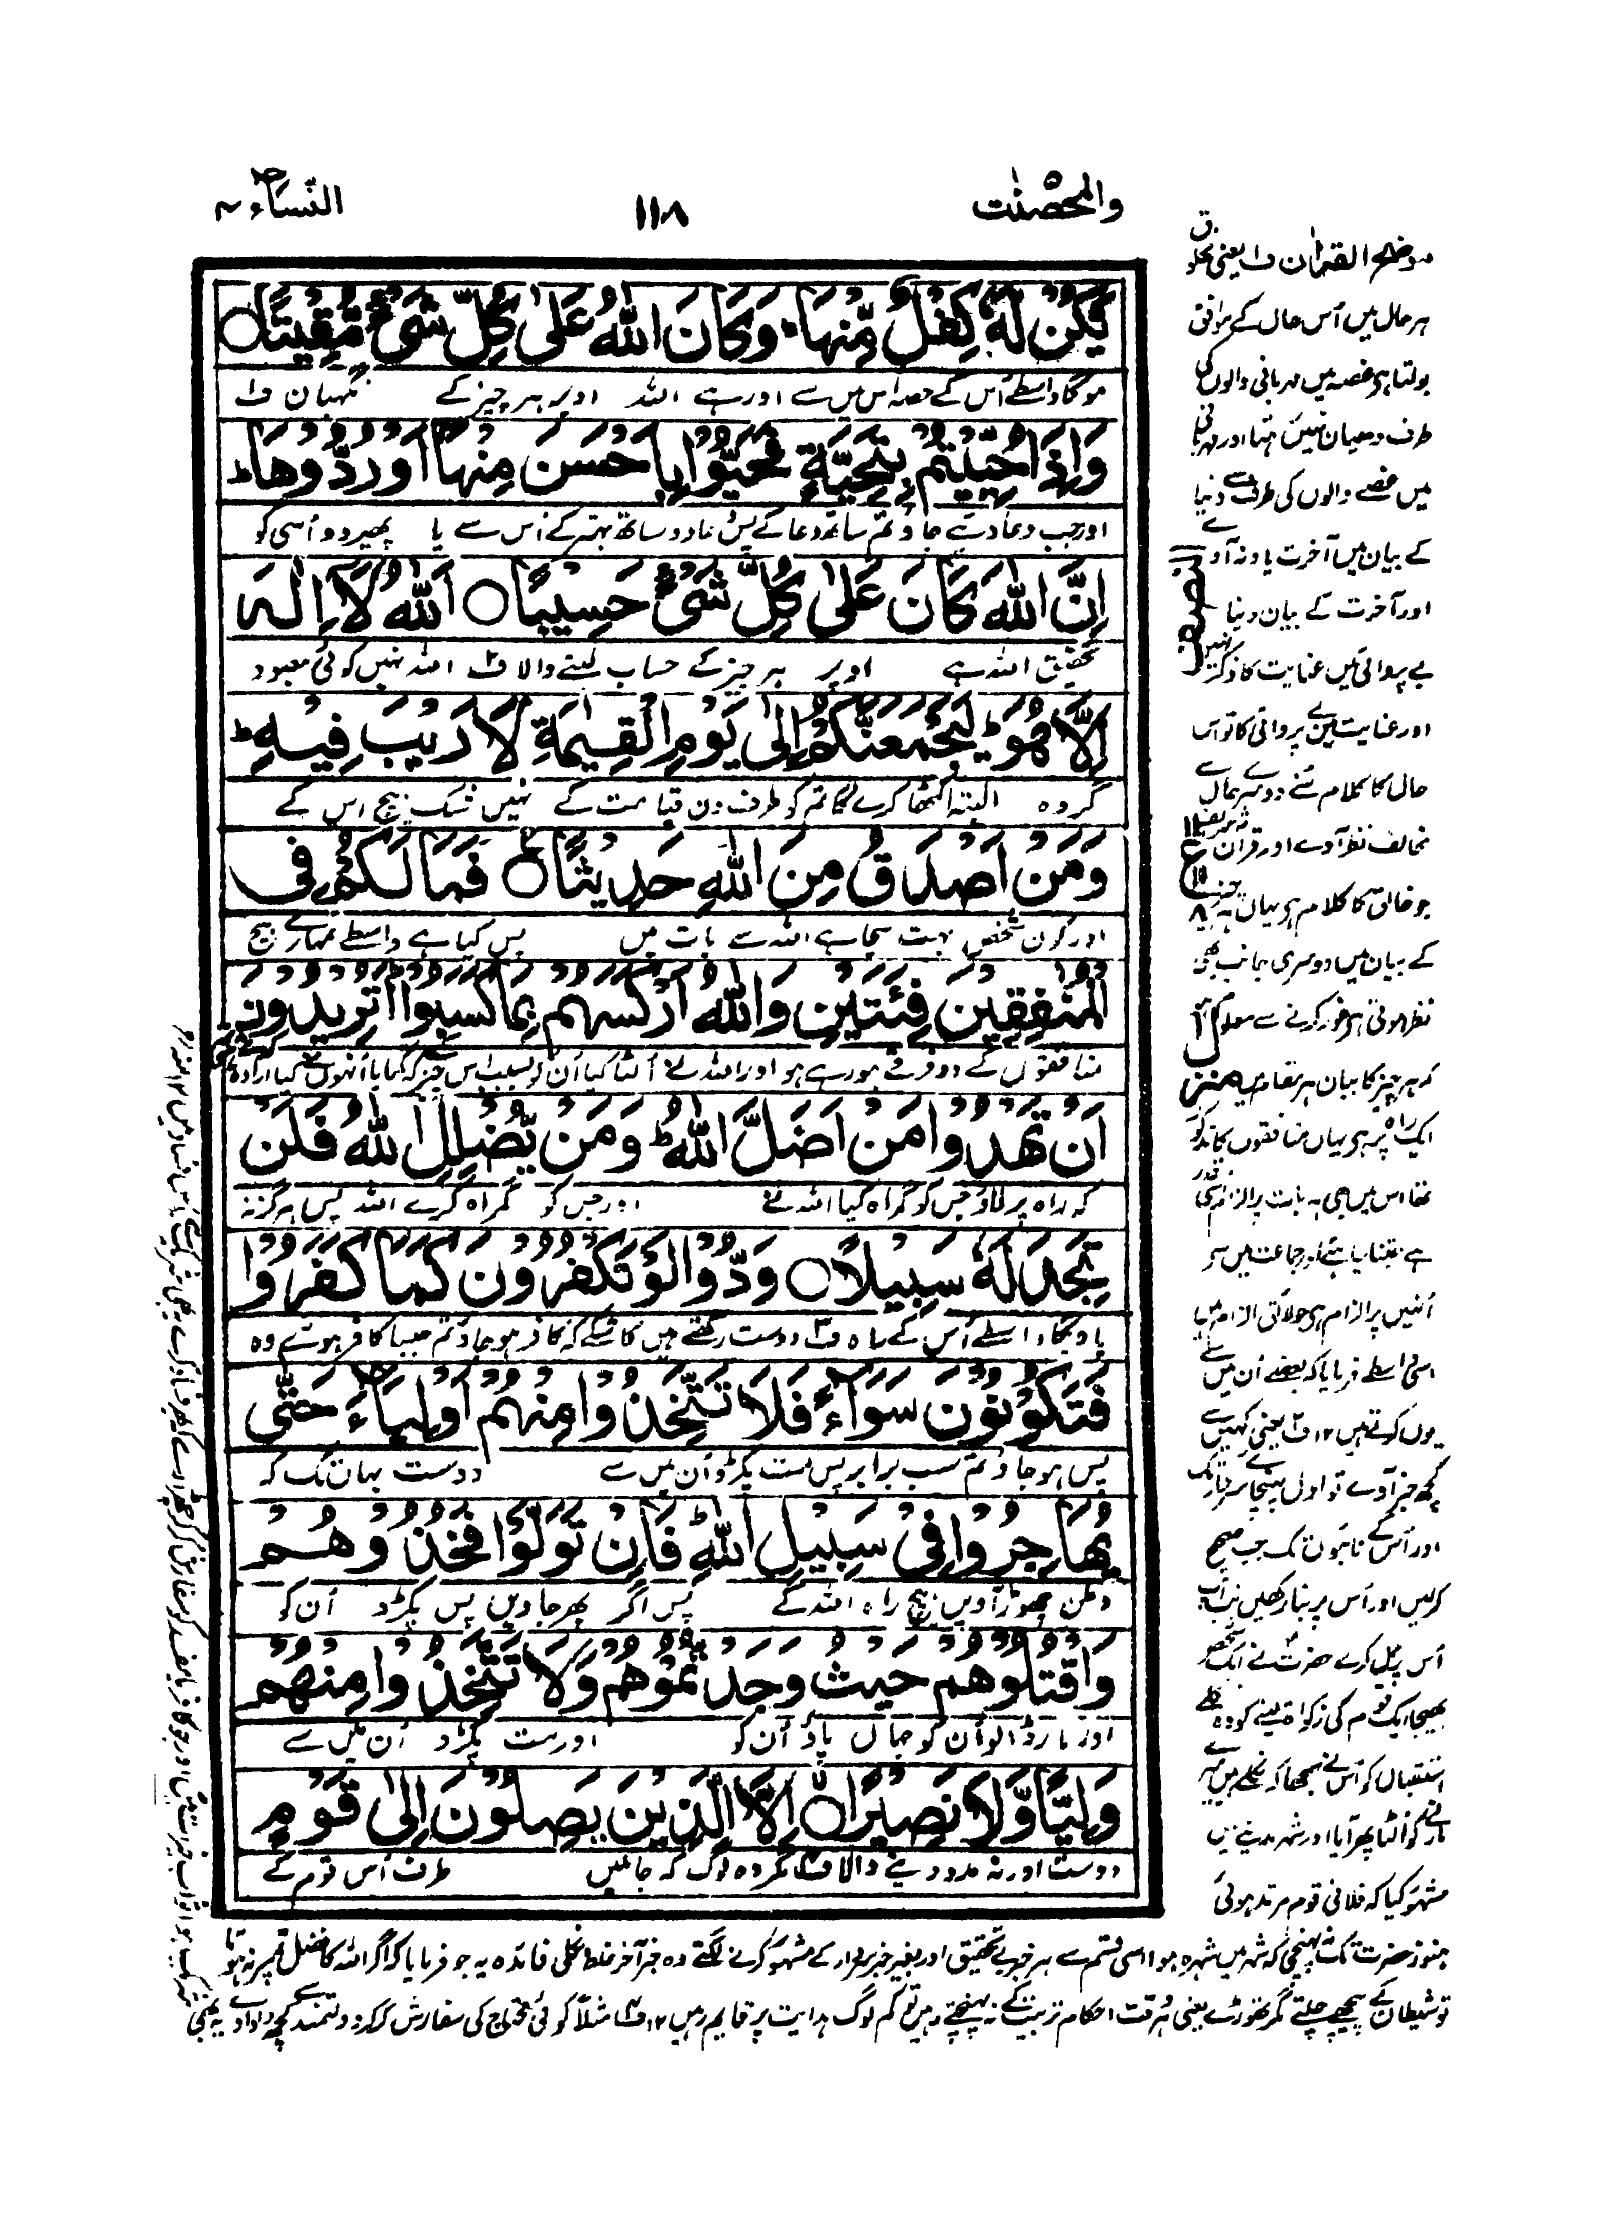 والمحصنٰت
١١٨
النسآء ٤
يَكُنْ لَّهٗ كِفْلٌ مِّنْهَا ؕ وَكَانَ اللّٰهُ عَلٰى كُلِّ شَىْءٍ مُّقِيْتًا ○
ہوگا واسطے اُس کے حصہ اس میں سے اور ہے اللہ اوپر ہر چیز کے نگہبان ف۱
وَاِذَا حُيِّيْتُمْ بِتَحِيَّةٍ فَحَيُّوْا بِاَحْسَنَ مِنْهَآ اَوْ رُدُّوْهَا ؕ
اور جب دعا دیئے جاؤ تم ساتھ دعا کے پس دعا دو ساتھ بہتر کے اُس سے یا پھیر دو اُسی کو
اِنَّ اللّٰهَ كَانَ عَلٰى كُلِّ شَىْءٍ حَسِيْبًا ○ اَللّٰهُ لَآ اِلٰهَ
تحقیق اللہ ہے اوپر ہر چیز کے حساب لینے والا ف۲ اللہ نہیں کوئی معبود
اِلَّا هُوَ ؕ لَيَجْمَعَنَّكُمْ اِلٰى يَوْمِ الْقِيٰمَةِ لَا رَيْبَ فِيْهِ ؕ
مگر وہ البتہ اکٹھا کرے گا تم کو طرف دن قیامت کے نہیں شک بیچ اس کے
وَمَنْ اَصْدَقُ مِنَ اللّٰهِ حَدِيْثًا ○ فَمَا لَكُمْ فِى
اور کون شخص بہت سچا ہے اللہ سے بات میں پس کیا ہے واسطے تمہارے بیچ
الْمُنٰفِقِيْنَ فِئَتَيْنِ وَاللّٰهُ اَرْكَسَهُمْ بِمَا كَسَبُوْا ؕ اَتُرِيْدُوْنَ
منافقوں کے دو فرقے ہو رہے ہو اور اللہ نے اُلٹا کیا اُن کو بسبب اس چیز کے کہ کمایا اُنہوں نے کیا ارادہ
اَنْ تَهْدُوْا مَنْ اَضَلَّ اللّٰهُ ؕ وَمَنْ يُّضْلِلِ اللّٰهُ فَلَنْ
کہ راہ پر لاؤ جس کو گمراہ کیا اللہ نے اور جس کو گمراہ کرے اللہ پس ہرگز نہ
تَجِدَ لَهٗ سَبِيْلًا ○ وَدُّوْا لَوْ تَكْفُرُوْنَ كَمَا كَفَرُوْا
پاویگا واسطے اُس کے راہ ف۳ دوست رکھتے ہیں کاشکے کہ کافر ہو جاؤ تم جیسا کافر ہوئے وہ
فَتَكُوْنُوْنَ سَوَآءً فَلَا تَتَّخِذُوْا مِنْهُمْ اَوْلِيَآءَ حَتّٰى
پس ہو جاؤ تم سب برابر پس مت پکڑو اُن میں سے دوست یہاں تک کہ
يُهَاجِرُوْا فِىْ سَبِيْلِ اللّٰهِ ؕ فَاِنْ تَوَلَّوْا فَخُذُوْهُمْ
وطن چھوڑ آویں بیچ راہ اللہ کے پس اگر پھر جاویں پس پکڑو اُن کو
وَاقْتُلُوْهُمْ حَيْثُ وَجَدْتُّمُوْهُمْ وَلَا تَتَّخِذُوْا مِنْهُمْ
اور مار ڈالو اُن کو جہاں پاؤ اُن کو اور مت پکڑو اُن میں سے
وَلِيًّا وَّلَا نَصِيْرًا ○ اِلَّا الَّذِيْنَ يَصِلُوْنَ اِلٰى قَوْمٍ
دوست اور نہ مدد دینے والا ف۴ مگر وہ لوگ کہ جا ملیں طرف اُس قوم کے
موضح القرآن ف۱ یعنی مخلوق
ہر حال میں اُس حال کے موافق
بولتا ہے غصہ میں مہربانی والوں کی
طرف دھیان نہیں رہتا اور مہربانی
میں غصے والوں کی طرف سے دنیا
کے بیان میں آخرت یاد نہ آوے
اور آخرت کے بیان دنیا
بے پروائی میں عنایت کا ذکر نہیں
اور عنایت میں بے پروائی کا تو اس
حال کا کلام سُنے دوسرے حال سے
مخالف نظر آوے اور قرآن شریف
جو خالق کا کلام ہے یہاں ہر چیز
کے بیان میں دوسری جانب بھی
نظر ہوتی ہے غور کرنے سے معلوم
کہ ہر چیز کا بیان ہر مقام میں
ایک راہ پر ہے یہاں منافقوں کا مذکور
تھا اس میں بھی ہر بات پر الزام اسی قدر
ہے جتنا چاہئے اور جماعت میں سے
اُنہیں پر الزام ہے جو لائق الزام ہیں
اسی واسطے فرمایا کہ بعضے اُن میں سے
یوں کرتے ہیں ۱۲ ف۲ یعنی کہیں سے
کچھ خبر آوے تو اول پہنچائے سردار تک
اور اُس کے نائبوں تک جب صحیح
کرلیں اور اُس پر بنا رکھیں تب
اُس پر عمل کرے حضرت نے ایک شخص
بھیجا ایک قوم کی زکوٰۃ لینے کو وہ نکلے
استقبال کو اُس نے سمجھا کہ نکلے میرے
مارنے کو اُلٹا پھر آیا اور شہر مدینے میں
مشہور کیا کہ فلانی قوم مرتد ہوئی
ہنوز حضرت تک نہ پہنچی کہ شہر میں شہرہ ہوا اسی قسم سے ہر خبر بے تحقیق اور بغیر خبر سردار کے مشہور کرنے لگتے وہ خبر آخر غلط نکلی فائدہ یہ جو فرمایا کہ اگر اللہ کا فضل تم پر نہ ہوتا
تو شیطان کے پیچھے چلتے مگر تھوڑے یعنی ہر وقت احکام تربیت کے نہ پہنچتے رہیں تو کم لوگ ہدایت پر قائم رہیں ۱۲ ف۳ مثلاً کوئی محتاج کی سفارش کر کر دولتمند سے کچھ دلوادے یہ بھی